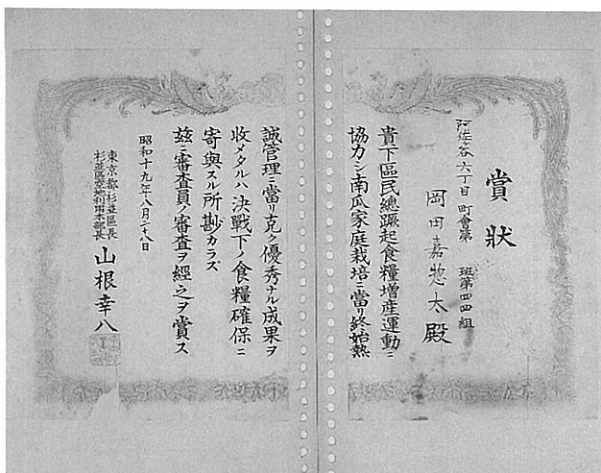 賞狀
阿佐ヶ谷六丁目町會第　班第四四組
岡田嘉惣太殿
貴下區民總蹶起食糧增産運動ニ
協力シ南瓜家庭栽培ニ當リ終始熱
誠管理ニ當リ克ク優秀ナル成果ヲ
收メタルハ決戰下ノ食糧確保ニ
寄與スル所尠カラズ
玆ニ審査員ノ審査ヲ經之ヲ賞ス
昭和十九年八月二十八日
東京都杉並區長
杉並區空地利用本部長
山根幸八